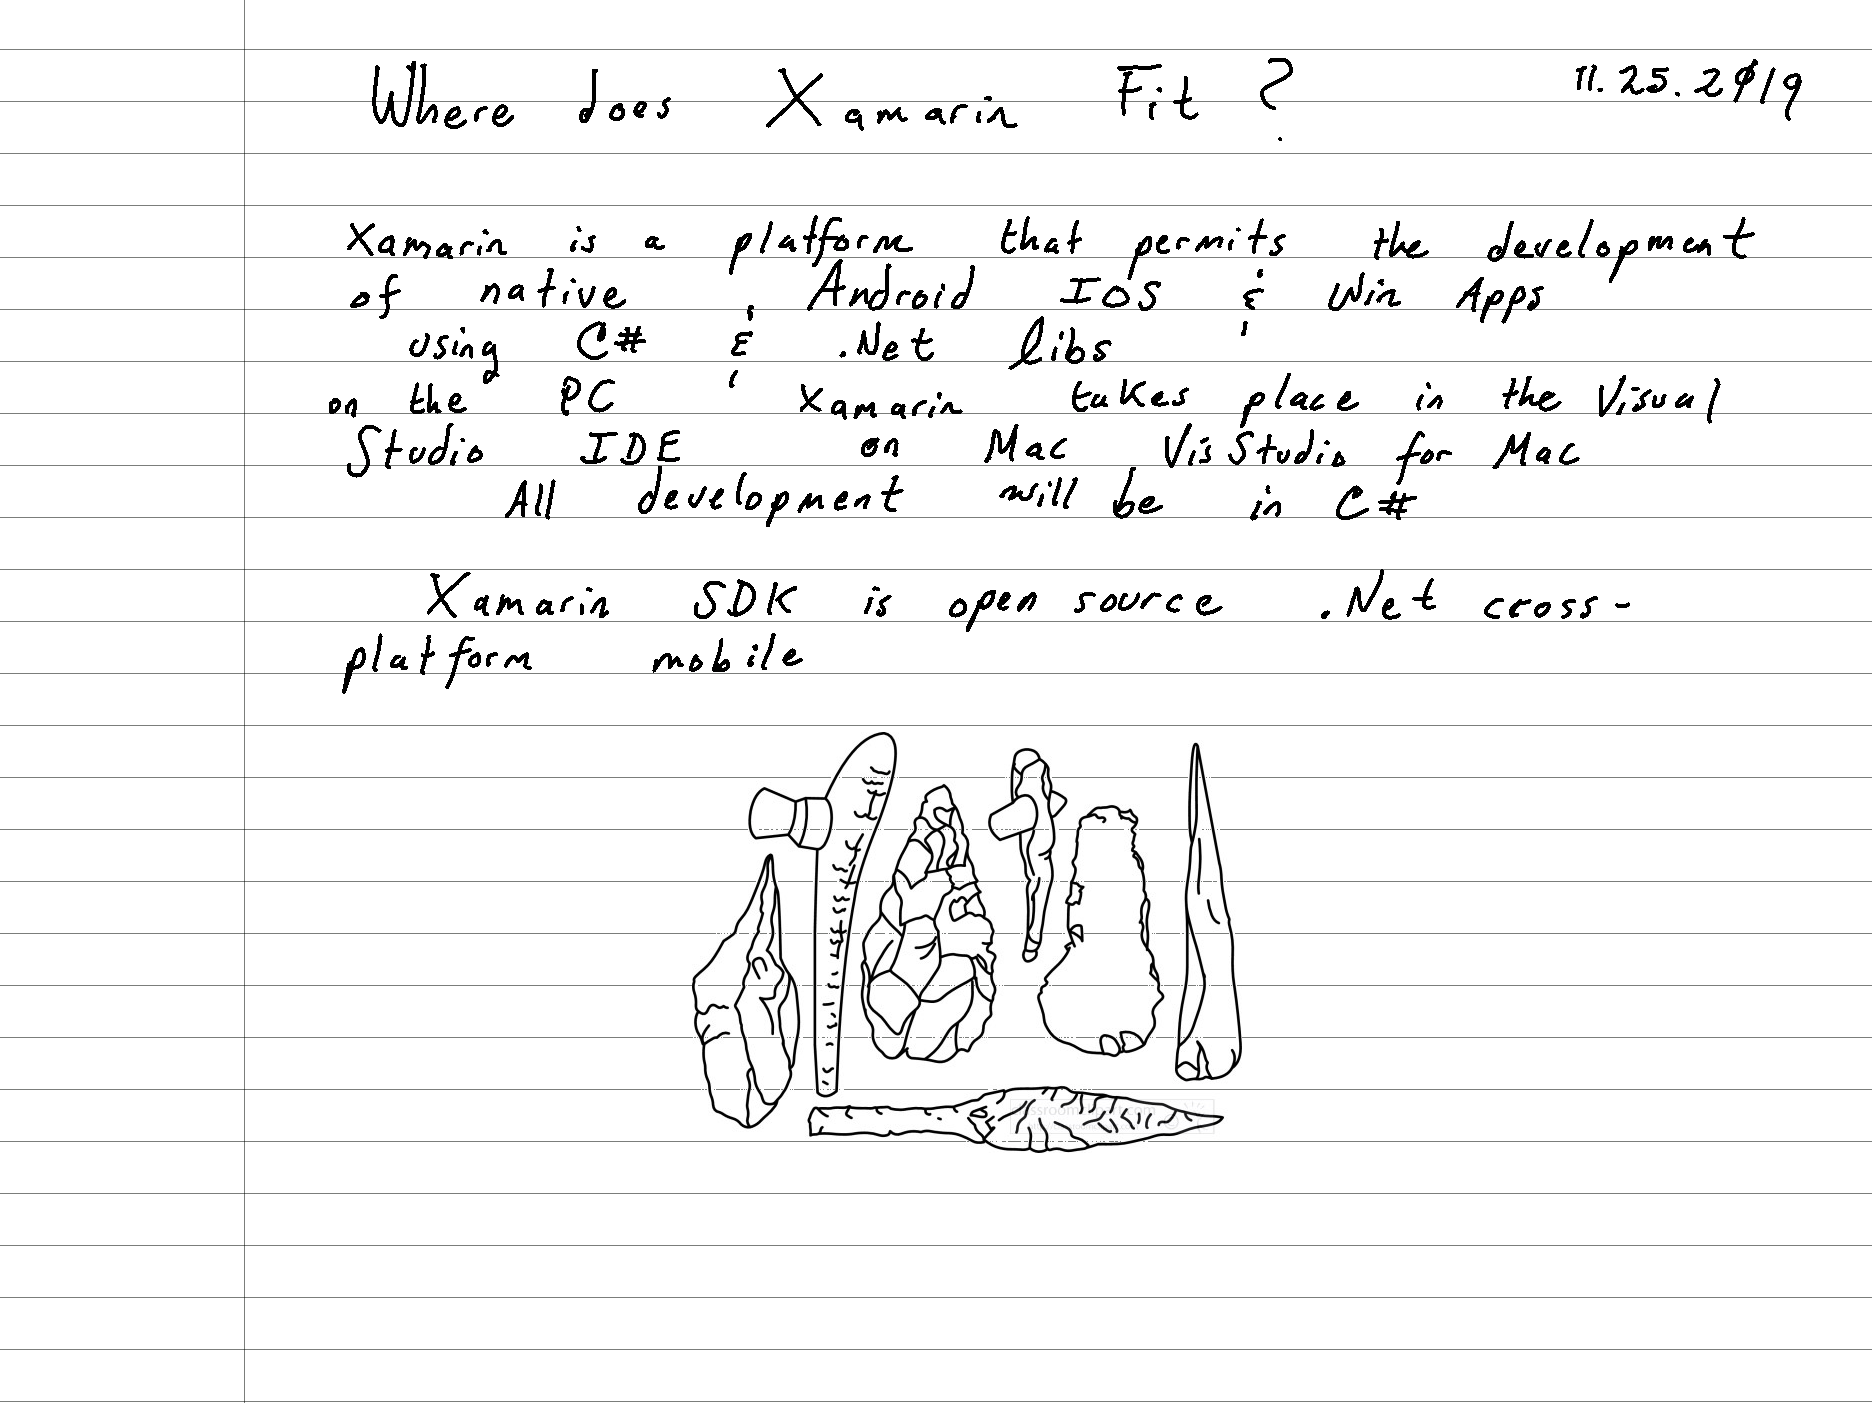 Where does Xamarin Fit ? 11.25.2019
Xamarin is a platform that permits the development
of native Android IOS & Win Apps
using C# & .Net libs
on the PC Xamarin takes place in the Visual
Studio IDE on Mac VisStudio for Mac
All development will be in C#
Xamarin SDK is open source .Net cross-
platform mobile